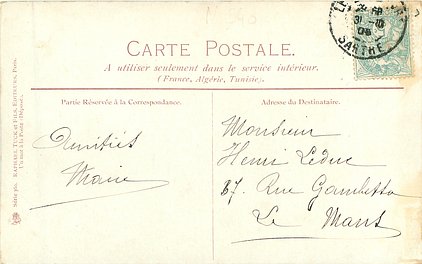 CARTE POSTALE.
A utiliser seulement dans le service intérieur.
(France, Algérie, Tunisie).
Partie Réservée à la Correspondance.
Adresse du Destinataire.
Amitiés
Marie
Monsieur
Henri Leduc
37. Rue Gambetta
Le Mans
SARTHE
Série 910. RAPHAEL TUCK et FILS, EDITEURS, Paris.